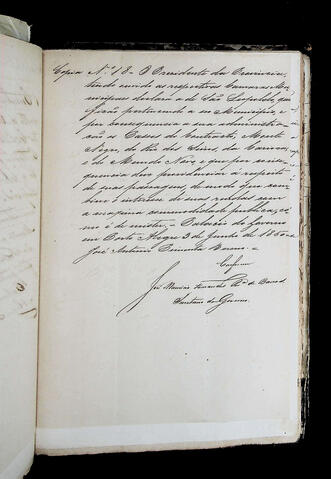 Copia N.º 18 - O Presidente da Provincia,
tendo ouvido as respectivas Camaras Mu-
nicipaes declara a de São Leopoldo, que
ficão pertencendo a seu Municipio, e
por consequencia a sua administra-
ção as Casas do Contracto, Monte
Negro, do Rio dos Sinos, da Carioca,
e do Mundo Novo, e que por conse-
quencia deve providenciar á respeito
de suas passagens, de modo que com-
bine o interesse de suas rendas com
a maxima commodidade publica, co-
mo é de mister. - Palacio do Governo
em Porto Alegre 2 de Junho de 1850 =
José Antonio Pimenta Bueno. =
Conforme
José Mauricio Fernandes P.ª de Barros
Secretario do Governo.